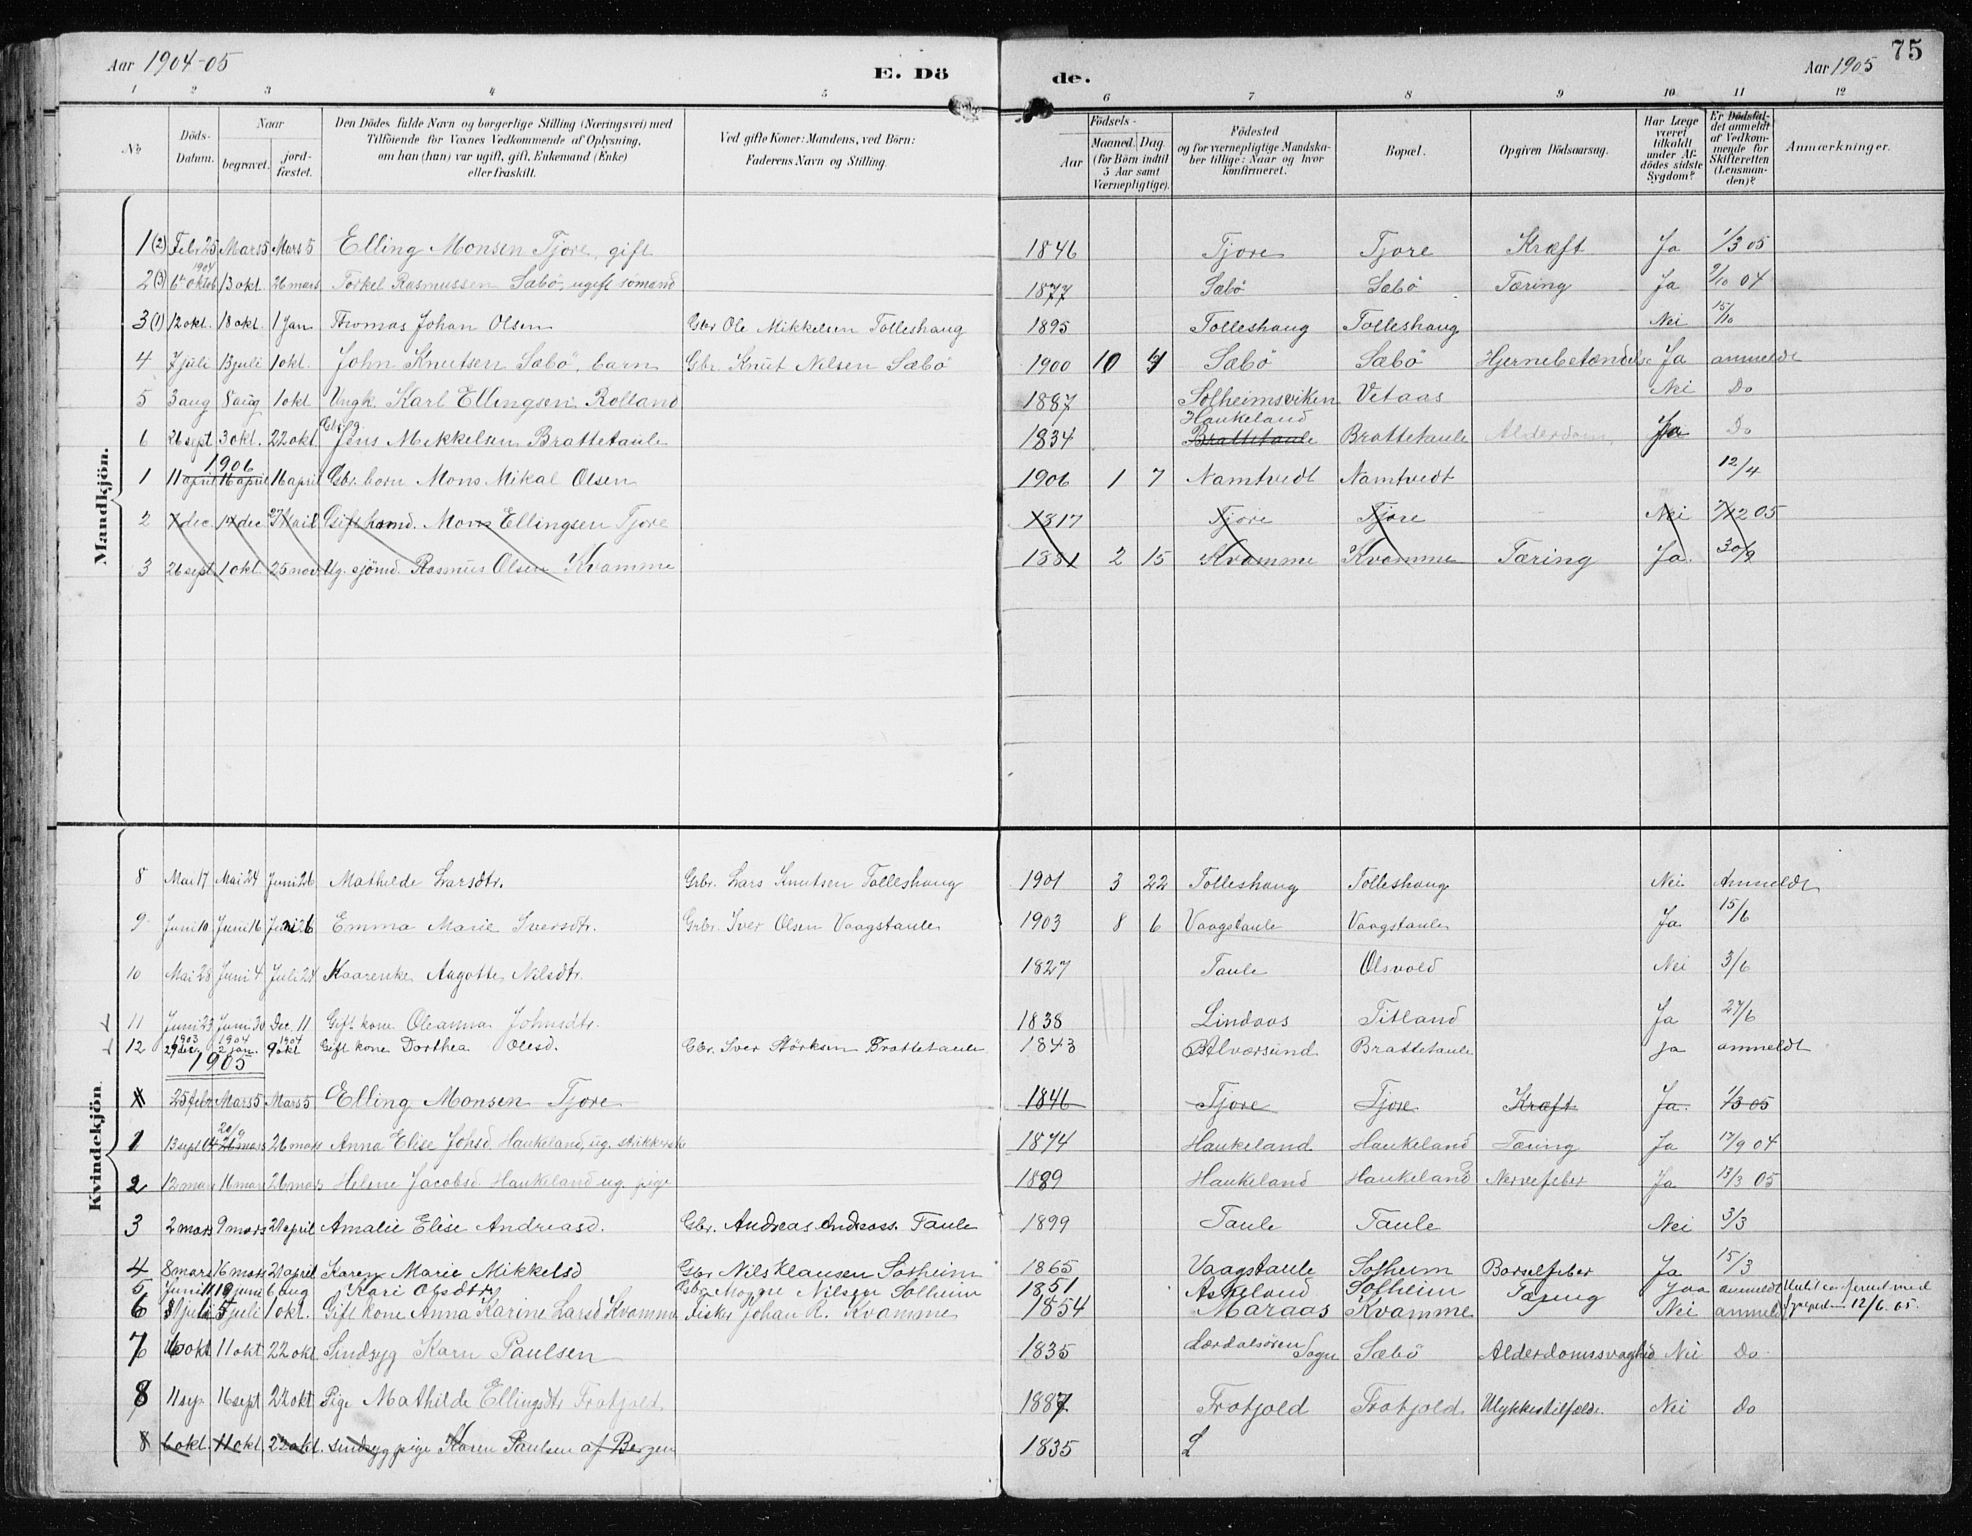 Aar 1904-05
E. Dö
de.
Aar 1905
75
1 2 3 4 5 6 7 8 9 10 11 12
No
Döds-Datum.
Naar
begravet.
jordfæstet.
Den Dödes fulde Navn og borgerlige Stilling (Næringsvei) med
Tilföiende for Voxnes Vedkommende af Oplysning,
om han (hun) var ugift, gift, Enkemand (Enke)
eller fraskilt.
Ved gifte Koner: Mandens, ved Börn:
Faderens Navn og Stilling.
Födsels-
Aar
Maaned. Dag.
(for Börn indtil
5 Aar samt
Værnepligtige).
Födested
og for værnepligtige Mandska-
ber tillige: Naar og hvor
konfirmeret.
Bopæl.
Opgiven Dödsaarsag.
Har Læge
været
tilkaldt
under Af-
dödes sidste
Sygdom?
Er Dödsfal-
det anmeldt
af Vedkom-
mende for
Skifteretten
(Lensman-
den)?
Anmærkninger.
Mandkjön.
1 (2) Febr 25 Mars 5 Mars 5 Elling Monsen Tjore, gift 1846 Tjore Tjore Kræft Ja 1/3 05
1904
2 (3) 6te oktob 13 okt. 26 mars Torkel Rasmussen Sæbö, ugift sömand 1877 Sæbö Sæbö Tæring Ja 9/10 04
3 (1) 12 okt. 18 okt. 1 Jan Thomas Johan Olsen Gbr Ole Mikkelsen Tolleshaug 1895 Tolleshaug Tolleshaug Nei 15/10
4 7 juli 13 juli 1 okt. John Knutsen Sæbö, barn Gbr. Knut Nilsen Sæbö 1900 10 Sæbö Sæbö Hjernebetændelse Ja anmeldt
5 3 aug 8 aug 1 okt Ungk. Karl Ellingsen Rolland 1887 Solheimsviken Vetaas Nei Do
6 26 sept 3 okt. 22 okt. Jens Mikkelsen Brattetaule 1834 Haukeland Brattetaule Brattetaule Alderdom, Ja Do
1906
1 11 april 16 april 16 april Gbr. born Mons Mikal Olsen 1906 1 7 Namtvedt Namtvedt 12/4
2 7 dec. 14 dec Gift hmd. Mons Ellingsen Tjore 1817 Tjore Tjore Nei 12 05
3 26 sept. 1 okt. 25 nov. Ug. sjömd. Rasmus Olsen Kvamme 1881 2 15 Kvamme Kvamme Tæring Ja. 30/9
Kvindekjön.
8 Mai 17 Mai 24 Juni 26 Mathilde Larsdtr. Grbr. Lars Knutsen Tolleshaug 1901 3 22 Tolleshaug Tolleshaug Nei Anmeldt
9 Juni 10 Juni 16 Juni 26 Emma Marie Iversdtr. Grbr. Iver Olsen Vaagstaule 1903 8 6 Vaagstaule Vaagstaule Ja 15/6
10 Mai 28 Juni 4 Juli 24 Kaarenke Aagotte Nilsdtr. 1827 Taule Olsvold Nei 3/6
11 Juni 23 Juni 30 Dec. 11 Gift kone Oleanna Johnsdtr. 1838 Lindaas Titland Ja 27/6
1903 1904 1904
12 29 dec. 2 jan. 9 okt Gift kone Dorthea Olesd. Gbr. Iver Störksen Brattetaule 1843 Alversund Brattetaule ja anmeldt
1905
25 febr Mars 5 Mars 5 Elling Monsen Tjore 1846 Tjore Tjore Kræft Ja 1/3 05
1 13 sept 04 26 mars 26 mars Anna Elise Johsd. Haukeland, ug. 1874 Haukeland Haukeland Tæring Ja 17/9 04
2 12 mars 16 mars 26 mars Helene Jacobsd. Haukeland ug. pige 1889 Haukeland Haukeland Nervefeber Ja 13/3 05
3 2 mars 9 mars 21 april Amalie Elise Andreasd. Gbr. Andreas Andreass. Taule 1899 Taule Taule Nei 3/3
4 8 mars 16 mars 21 april Karen Marie Mikkelsd Gbr Nils Klausen Solheim 1865 Vaagstaule Solheim Barselfeber Ja 15/3
5 Juni 11 19 juni 6 aug Kari Olsdtr. Gbr. Mogne Nilsen Solheim 1851 Askeland Solheim Tæring Jaa anmeldt
6 juli juli 1 okt. Gift kone Anna Karine Larsd Kvamme Fisker Johan R. Kvamme 1854 Maraas Kvamme Nei anmeldt 12/6. 05.
7 6 okt 11 okt 22 okt Sindsyg Karn Paulsen 1835 Lærdalsören Sogn Sæbö Alderdomssvaghed Nei Do.
8 11 sep. 16 sept 22 okt Pige Mathilde Ellingsdtr Frotjold. 1887 Frotjold Frotjold. Ulykkestilfælde. Nei Do
8 6 okt 11 okt. 22 okt. sindsyg pige Karen Paulsen af Bergen 1835 L